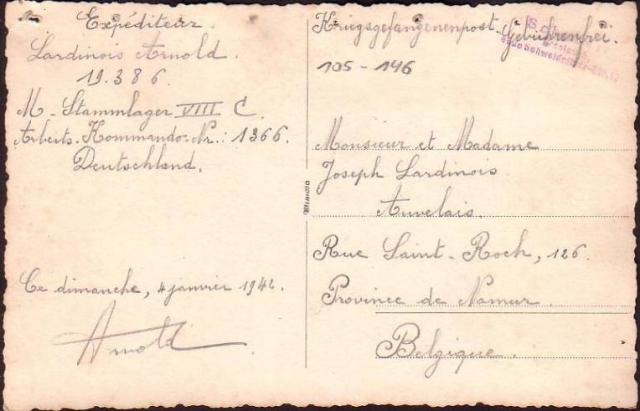 Expéditeur
Lardinois Arnold.
19.386
M-Stammlager VIII C.
Arbeits-Kommando-Nr.: 1366.
Deutschland.
Ce dimanche, 4 janvier 1942.
Arnold
Kriegsgefangenenpost. Gebührenfrei.
105-146
Monsieur et Madame
Joseph Lardinois
Auvelais.
Rue Saint-Roch, 126.
Province de Namur.
Belgique.